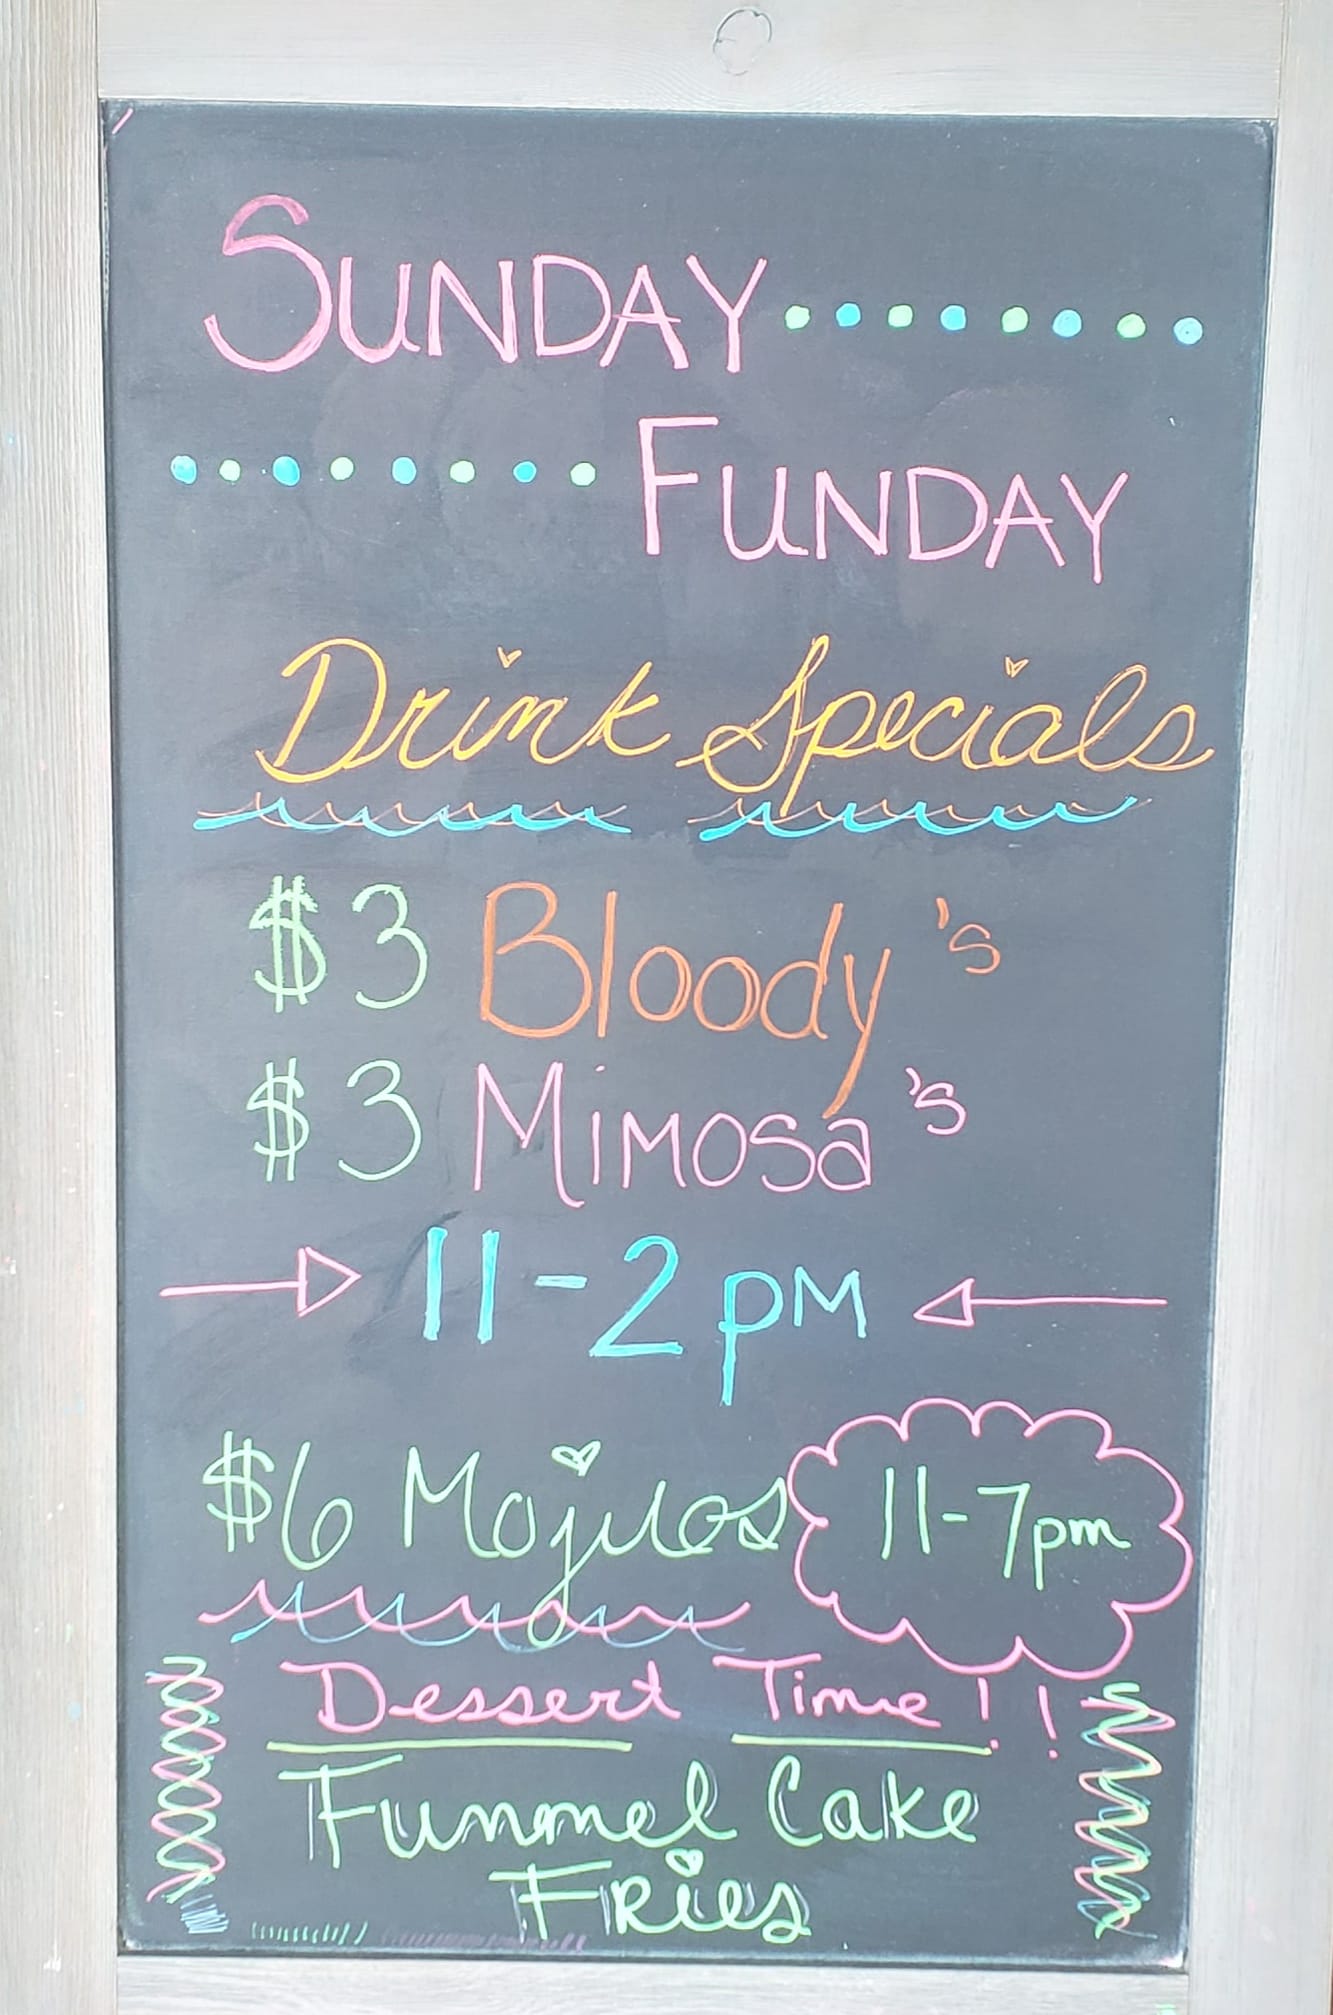 SUNDAY
FUNDAY
Drink Specials
$3 Bloody's
$3 Mimosa's
11-2pm
$6 Mojitos 11-7pm
Dessert Time!!
Funnel Cake
Fries